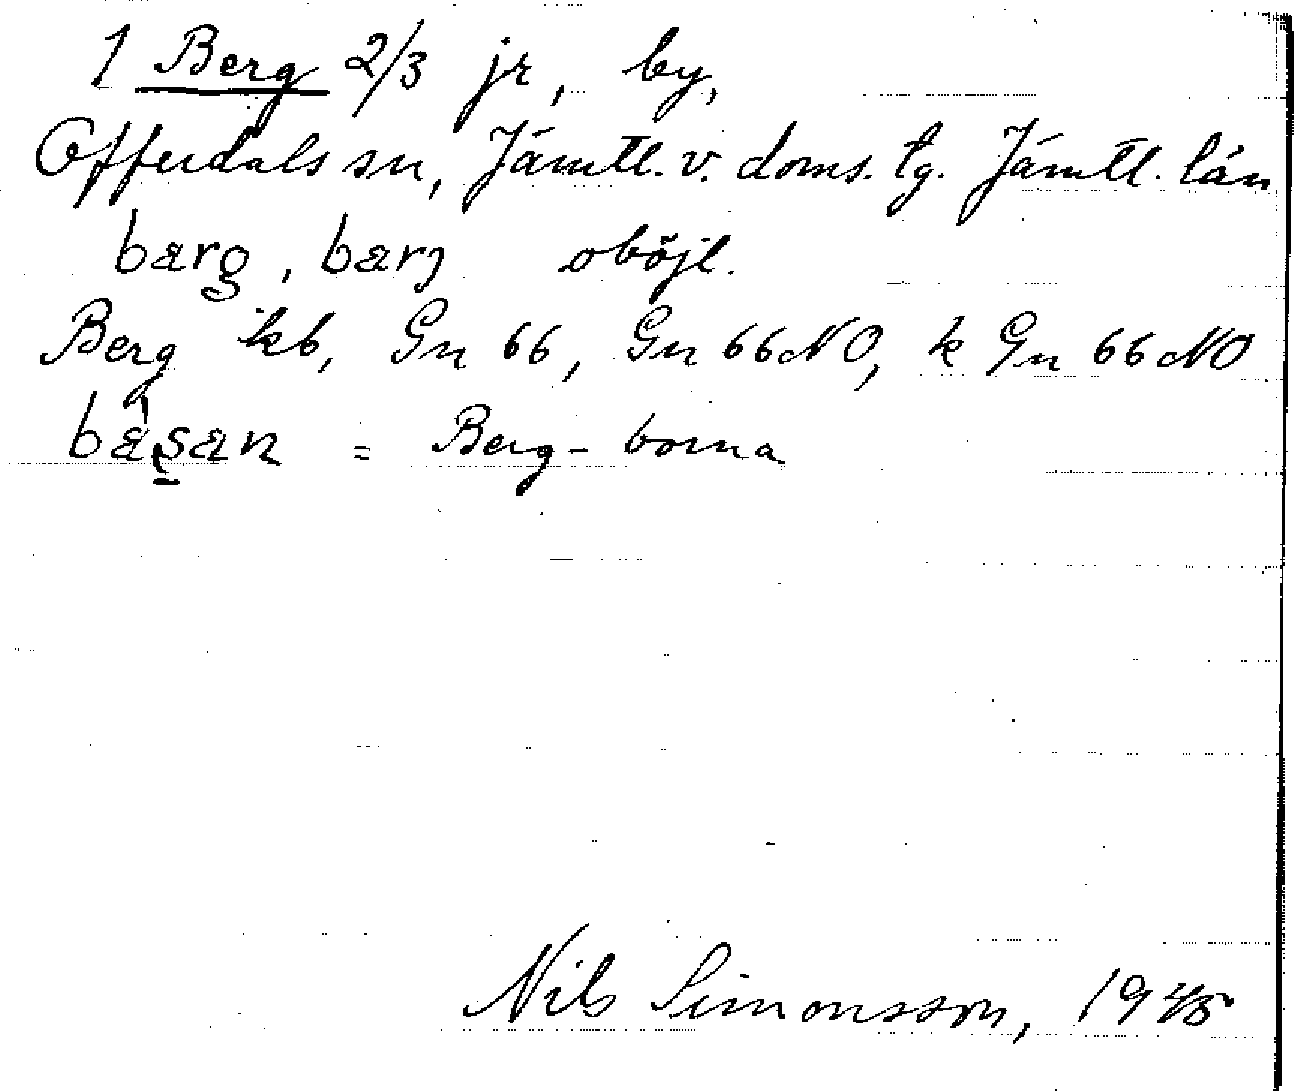 1 Berg 2/3 jr, by,
Offerdals sn, Jämtl. v. doms. tg. Jämtl. län
bærg, bærj oböjl.
Berg kb, Gn 66, Gn 66 NO, k Gn 66 NO
bæ̂ṣan = Berg-borna
Nils Simonsson, 1945